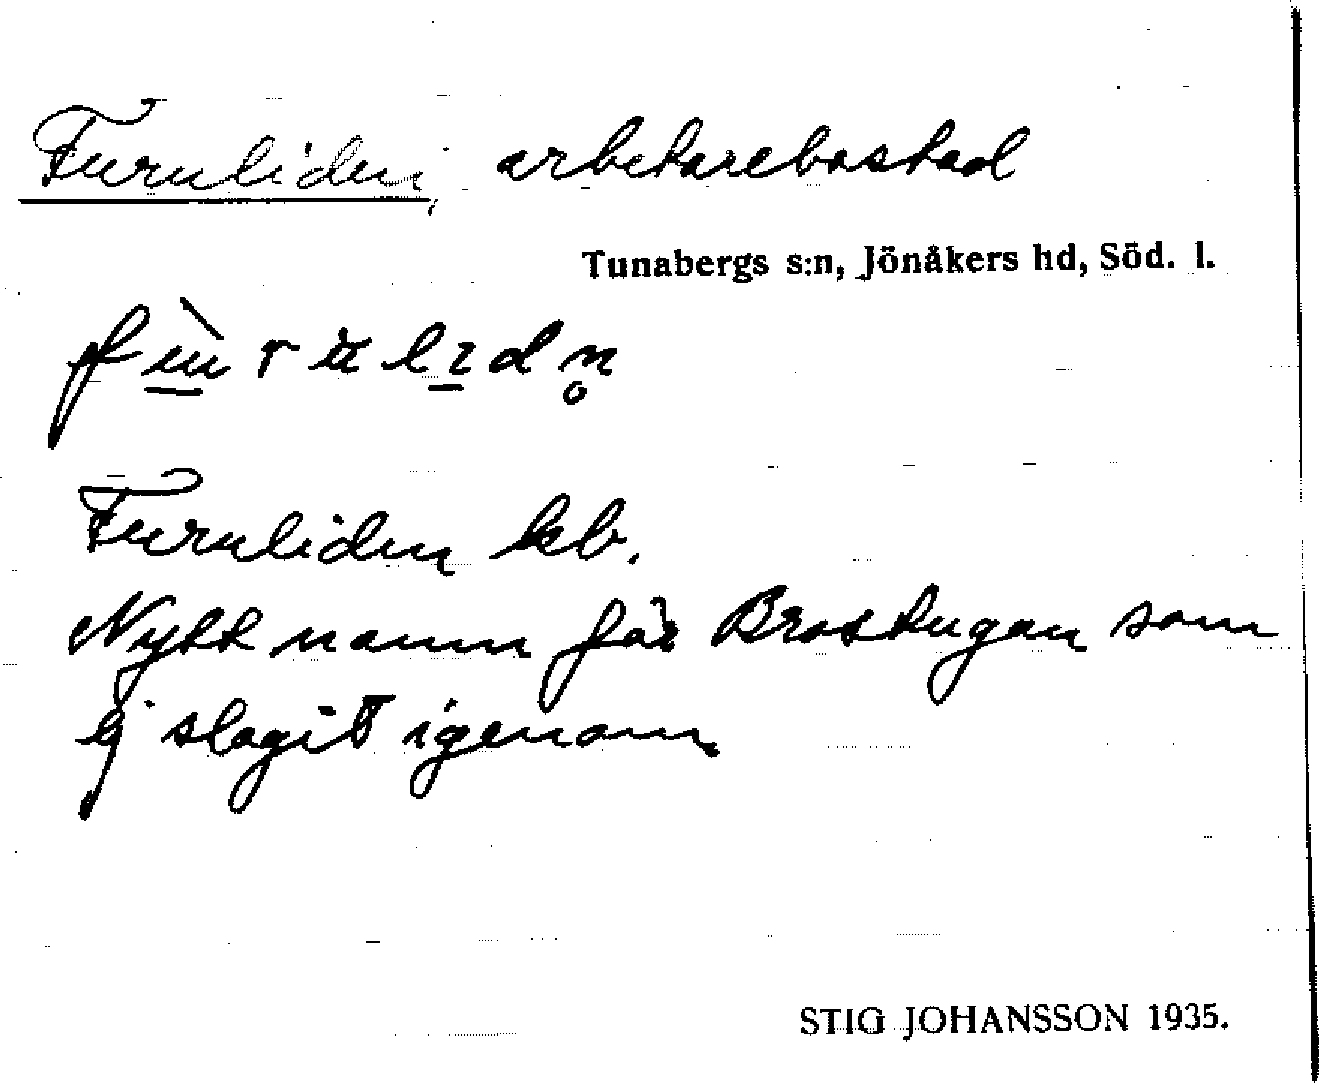 Furuliden, arbetarebostad
Tunabergs s:n, Jönåkers hd, Söd. l.
Furuliden kb.
Nytt namn för Brostugan som
ej slagit igenom
STIG JOHANSSON 1935.